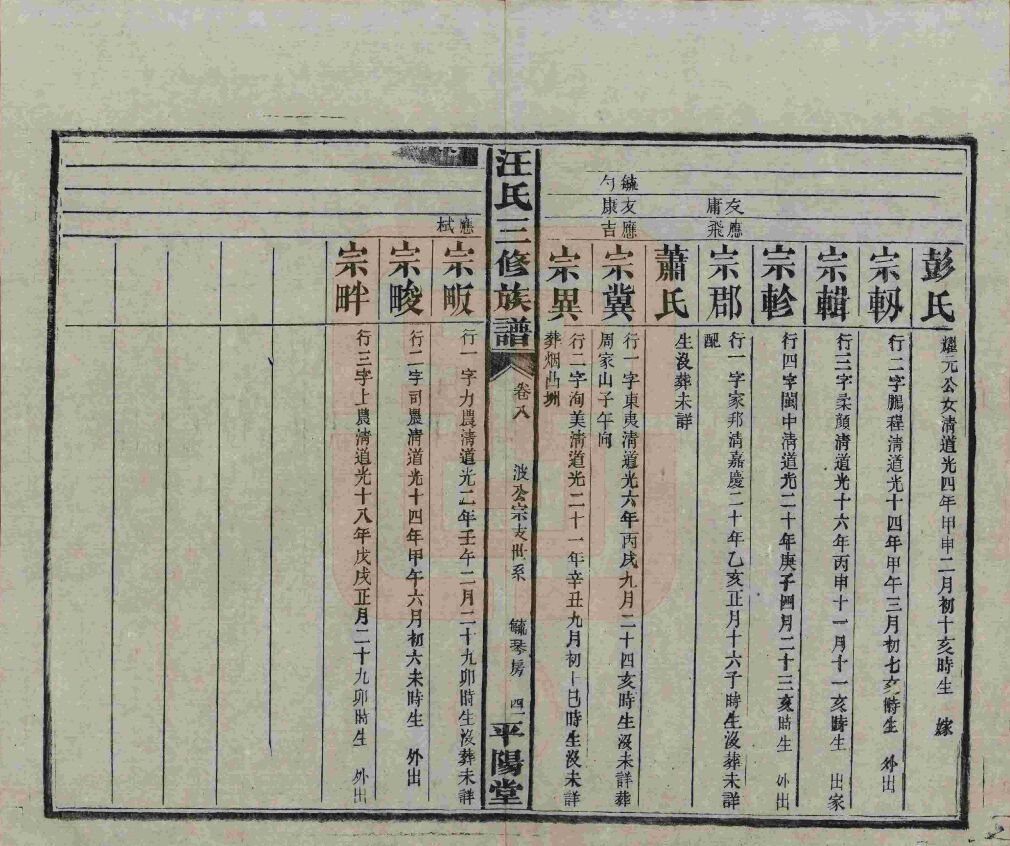 彭氏
耀元公女清道光四年甲申二月初十亥時生　嫁
宗軔
行二字鵬程清道光十四年甲午三月初七亥時生　外出
宗輯
行三字柔顏清道光十六年丙申十一月十一亥時生　出家
宗軫
行四字閩中清道光二十年庚子四月二十三亥時生　外出
友應
庸飛
宗郡
行一字家邦清嘉慶二十年乙亥正月十六子時生沒葬未詳
配
蕭氏
生沒葬未詳
毓友應
勻康吉
宗冀
行一字東夷清道光六年丙戌九月二十四亥時生沒未詳葬
周家山子午向
宗異
行二字洵美清道光二十一年辛丑九月初十巳時生沒未詳
葬烟凸圳
汪氏三修族譜
卷八
波公宗支世系
毓琴房
四一
平陽堂
應
栻
宗畈
行一字力農清道光二年壬午二月二十九卯時生沒葬未詳
宗畯
行二字司農清道光十四年甲午六月初六未時生　外出
宗畔
行三字上農清道光十八年戊戌正月二十九卯時生　外出